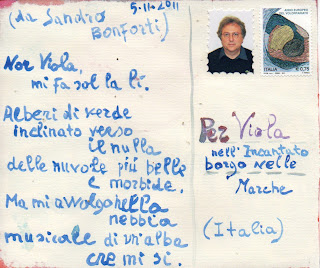 (da Sandro Bonforti)
5-11-2011
Nor Viola,
mi fa sol la li.
Alberi di verde
inclinato verso
il nulla
delle nuvole più belle
e morbide.
Ma mi avvolgo nella
nebbia
musicale di un'alba
che mi si.
ITALIA € 0,75
Per Viola
nell'Incantato
borgo nelle
Marche
(Italia)